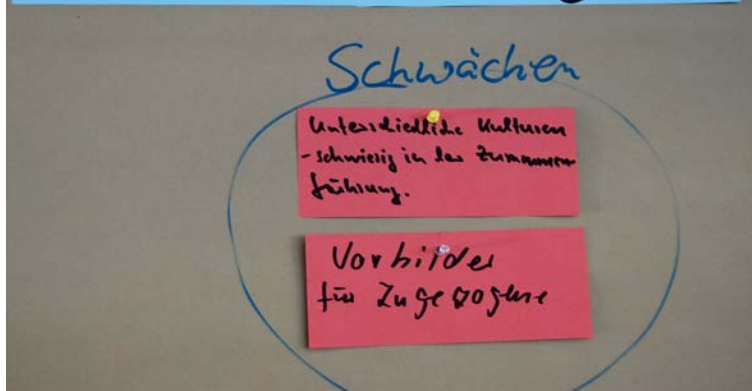 Schwächen
Unterschiedliche Kulturen
- schwierig in der Zusammen
führung.
Vorbilder
für Zugezogene